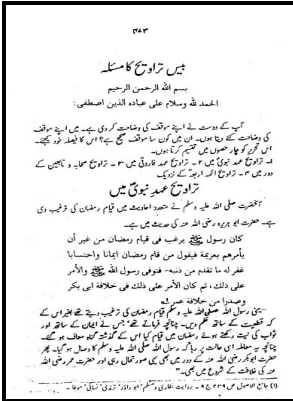 ۲۷۳
بیس تراویح کا مسئلہ
بسم الله الرحمن الرحيم
الحمد لله وسلام على عباده الذين اصطفى:
آپ کے دوست نے اپنے موقف کی وضاحت کر دی ہے۔ میں اپنے موقف
کی وضاحت کئے دیتا ہوں۔ ان میں کون سا موقف صحیح ہے؟ اس کا فیصلہ خود کیجئے۔
اس تحریر کو چار حصوں میں تقسیم کرتا ہوں۔
۱- تراویح عہد نبویؐ میں ۲- تراویح عہد فاروقیؓ میں ۳- تراویح صحابہ و تابعین کے
دور میں ۴- تراویح ائمہ اربعہؒ کے نزدیک
تراویح عہد نبویؐ میں
آنحضرت صلی اللہ علیہ وسلم نے متعدد احادیث میں قیام رمضان کی ترغیب دی
ہے۔ حضرت ابو ہریرہ رضی اللہ عنہ کی حدیث میں ہے۔
كان رسول ﷲ ﷺ يرغب فى قيام رمضان من غير أن
يأمرهم بعزيمة فيقول من قام رمضان ايمانا واحتسابا
غفر له ما تقدم من ذنبه- فتوفى رسول الله ﷺ والأمر
على ذلك، ثم كان الأمر على ذلك فى خلافة ابى بكر
وصدرا من خلافة عمر
یعنی رسول اللہ صلی اللہ علیہ وسلم قیام رمضان کی ترغیب دیتے تھے بغیر اس کے
کہ قطعیت کے ساتھ حکم دیں۔ چنانچہ فرماتے تھے: جس نے ایمان کے ساتھ اور
ثواب کی نیت رکھتے ہوئے رمضان میں قیام کیا اس کے گذشتہ گناہ معاف ہو گئے۔
چنانچہ یہ معاملہ اسی حالت پر رہا کہ رسول اللہ صلی اللہ علیہ وسلم کا وصال ہو گیا۔ پھر
حضرت ابوبکر رضی اللہ عنہ کے دور میں بھی یہی صورتحال رہی اور حضرت عمر رضی اللہ
عنہ کی خلافت کے شروع میں بھی۔"
(۱) جامع الاصول ص ۴۳۹ ج ۶- بروایت بخاری و مسلم، ابو داؤد، ترمذی، نسائی، موطا-